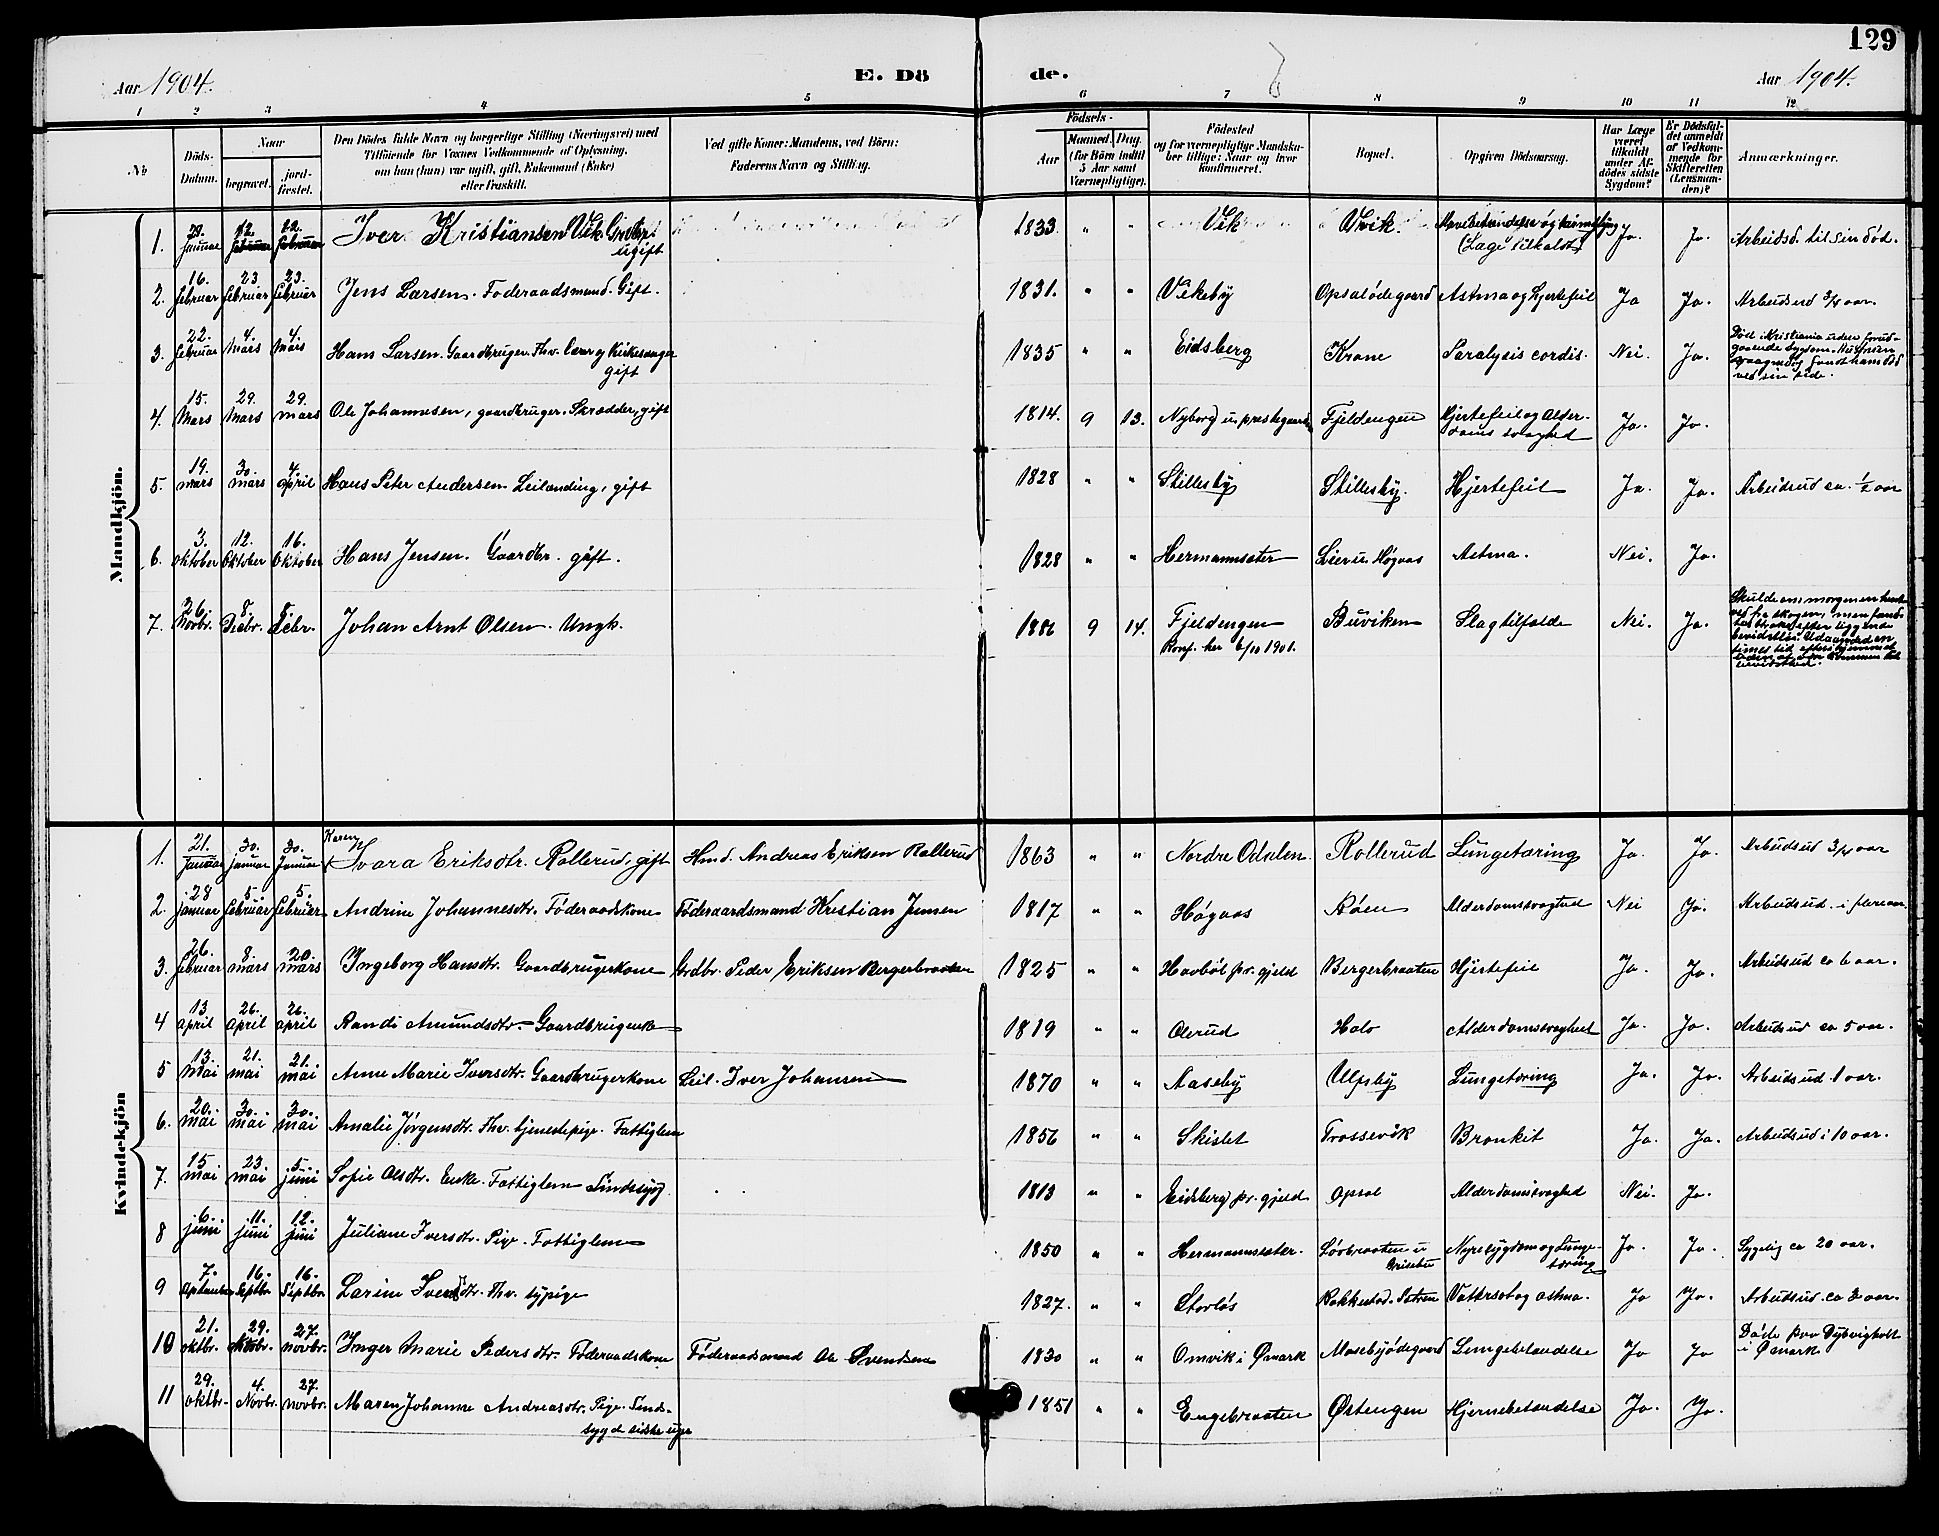 129
Aar 1904.
E. Dö
de.
Aar 1904.
1 2 3 4 5 6 7 8 9 10 11 12
No
Döds-Datum.
Naar
begravet.
jord-fæstet.
Den Dödes fulde Navn og borgerlige Stilling (Næringsvei) med
Tilföiende for Voxnes Vedkommende af Oplysning,
om han (hun) var ugift, gift, Enkemand (Enke)
eller fraskilt.
Ved gifte Koner: Mandens, ved Börn:
Faderens Navn og Stilling.
Födsels-
Aar
Maaned. Dag.
(for Börn indtil
5 Aar samt
Værnepligtige).
Födested
og for værnepligtige Mandska-
ber tillige: Naar og hvor
konfirmeret.
Bopæl.
Opgiven Dödsaarsag.
Har Læge
været
tilkaldt
under Af-
dödes sidste
Sygdom?
Er Dödsfal-
det anmeldt
af Vedkom-
mende for
Skifteretten
(Lensman-
den)?
Anmærkninger.
Mandkjön.
1. Januar 12. 22. Iver Kristiansen Vik Grdbr. ugift 1833 " " Vik Vik. (Læge tilkaldt) Ja. Ja. Arbeidsd. til sin död.
2. 16. februar 23. februar 23. februar Jens Larsen. Föderaadsmand. Gift. 1831. " " Vikeby Opsalödegaard Astma og hjertefeil Ja Ja. Arbeidsud 3/4 aar.
3. 22. februar 4. Mars 4. Mars Hans Larsen. Gaardbruger. Fhv. lærer og kirkesanger gift 1835 " " Eidsberg Krone Paralysis cordis. Nei. Ja. Död i Kristiania uden forud-
gaaende sygdom. Hustruen
ved sin side.
4. 15. Mars 29. Mars 29. mars Ole Johannesen, gaardbruger. Skrædder, gift 1814. 9 13. Nyborg u. prestegaarden Fjeldengen Hjertefeil og Alder-
doms svaghed Ja. Ja.
5. 19. mars 30. mars 4. april Hans Peter Andersen Leilænding, gift 1828 " " Stillesby Stillesby. Hjertefeil Ja. Ja. Arbeidsud ca. 1/2 aar
6. 3. oktober 12. Oktober 16. Oktober Hans Jensen. Gaardbr. gift. 1828 " " Hermannsæter Lier u. Högaas Astma. Nei. Ja.
7. 26. Novbr. 8. Decbr. 8. Decbr. Johan Arnt Olsen. Ungk. 1886 9 14. Fjeldengen
Konf. her 6/10 1901. Buviken Slagtilfælde Nei. Ja. Skulde om morgenen hente
ved fra skogen, men fandtes
bevidstlös.
Kvindekjön
1. 21. Januar 30. januar 30. Januar Karen
Svara Eriksdtr. Rollerud, gift Hmd. Andreas Eriksen Rollerud 1863 " " Nordre Odalen Rollerud Lungetæring Ja. Ja. Arbeidsud 3/4 aar
2. 28 januar 5. februar 5. februar Andrine Johannesdtr. Föderaadskone Föderaadsmand Kristian Jensen 1817 " " Högaas Röen Alderdomssvaghed Nei Ja. Arbeidsud. i flere aar.
3. 26. februar 8. mars 20. mars Ingeborg Hansdtr. Gaardbrugerkone Grdbr. Peder Eriksen Bergerbraaten 1825 " " Havböl pr.gjeld Bergerbraaten Hjertefeil Ja. Ja. Arbeidsud ca 6 aar.
4 13 april 26. april 26. april Randi Amundsdtr Gaardbrugerenke 1819 " " Olerud Halv Alderdomssvaghed Ja. Ja. Arbeidsud ca 5 aar.
5 13. Mai 21. mai 21. mai Anne Marie Iversdtr. Gaardbrugerkone Leil. Iver Johansen 1870 " " Aaseby Ulpsby Lungetæring Ja. Ja. Arbeidsud. 1 aar.
6. 20. mai 30. mai 30. mai Amalie Jörgensdtr. Fhv. tjenestepige. Fattiglem 1856 " " Skislet Trossevik Bronkit Ja. Ja. Arbeidsud i 10 aar.
7. 15 mai 23 mai 5. juni Sofie Olsdtr. Enke. Fattiglem Sindssyg 1813 " " Eidsberg pr.gjeld Opsal Alderdomssvaghed Nei. Ja.
8 6. juni 11. juni 12. juni Juliane Iversdtr. Pige. Fattiglem 1850 " " Hermannsæter. Lövbraaten u Nyresygdom og Lunge-
tæring Ja. Ja. Sygelig ca 20 aar.
9 7. September 16. Septbr. 16. Septbr. Larine Iversdtr. Fhv. sypige 1827. " " Storlös Rakkestad. Sætren Vattersot og astma. Ja Ja. Arbeidsud. ca 2 aar.
10 21. oktbr. 29. Oktobr. 27. novbr. Inger Marie Pedersdtr. Föderaadskone Föderaadsmand Ole Svendsen 1830 " " Omvik i Ømark Mosebyödegaard Lungebetændelse Ja Ja Döde paa Dybvigholt
i Ømark
11 29. oktbr. 4. Novbr. 27. novbr. Maren Johanne Andreasdtr. Pige. Sinds-
syg d sidste uge 1851 " " Engebraaten Östengen Hjernebetændelse Ja. Ja.